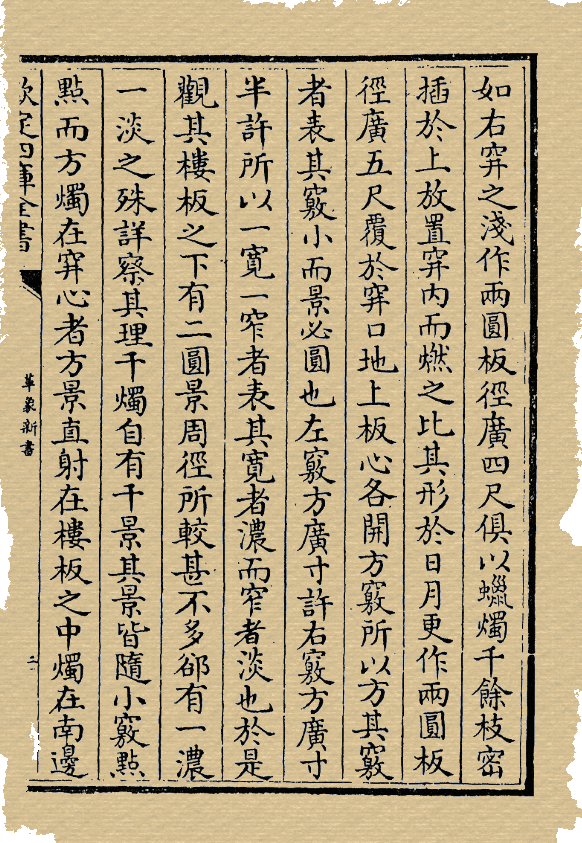 如右穽之淺作兩圓板徑廣四尺俱以蠟燭千餘枝密
插於上放置穽内而燃之比其形於日月更作兩圓板
徑廣五尺覆於穽口地上板心各開方竅所以方其竅
者表其竅小而景必圓也左竅方廣寸許右竅方廣寸
半許所以一寬一窄者表其寬者濃而窄者淡也於是
觀其樓板之下有二圓景周徑所較甚不多郤有一濃
一淡之殊詳察其理千燭自有千景其景皆隨小竅點
點而方燭在穽心者方景直射在樓板之中燭在南邊
欽定四庫全書
革象新書
二